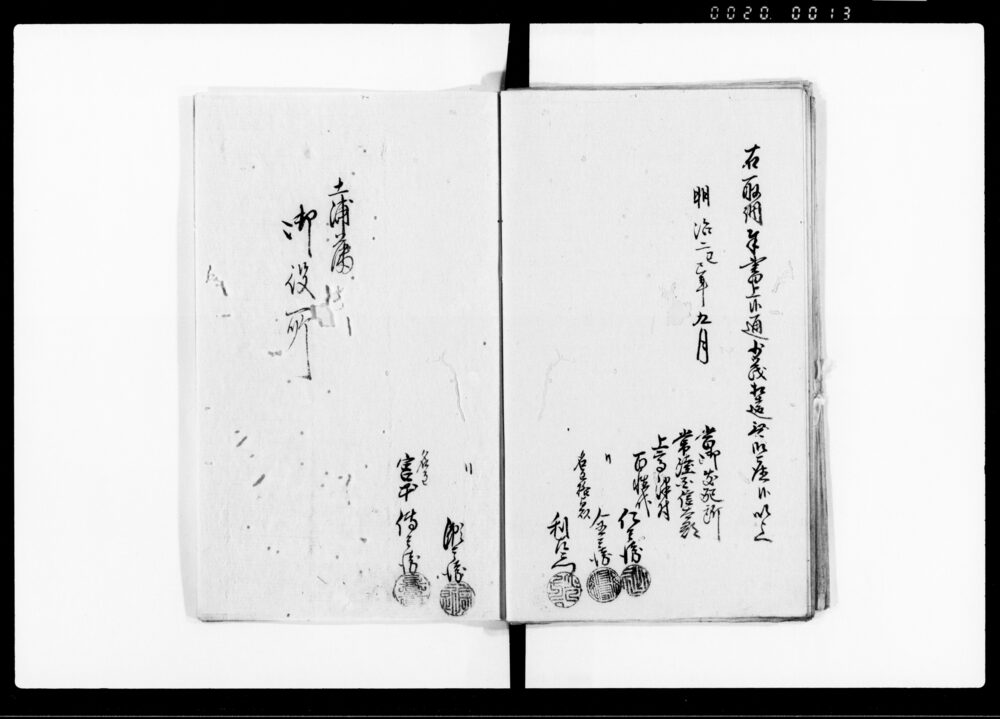 0020 0013
右取調年書上候通少茂相違無御座候以上
明治二己巳年九月
当御支配所
常陸国信太郡
上高津村
百姓代
仁兵衛
〃
金兵衛
名主
利
〃
兵衛
名主
宮本傳兵衛
土浦藩
御役所